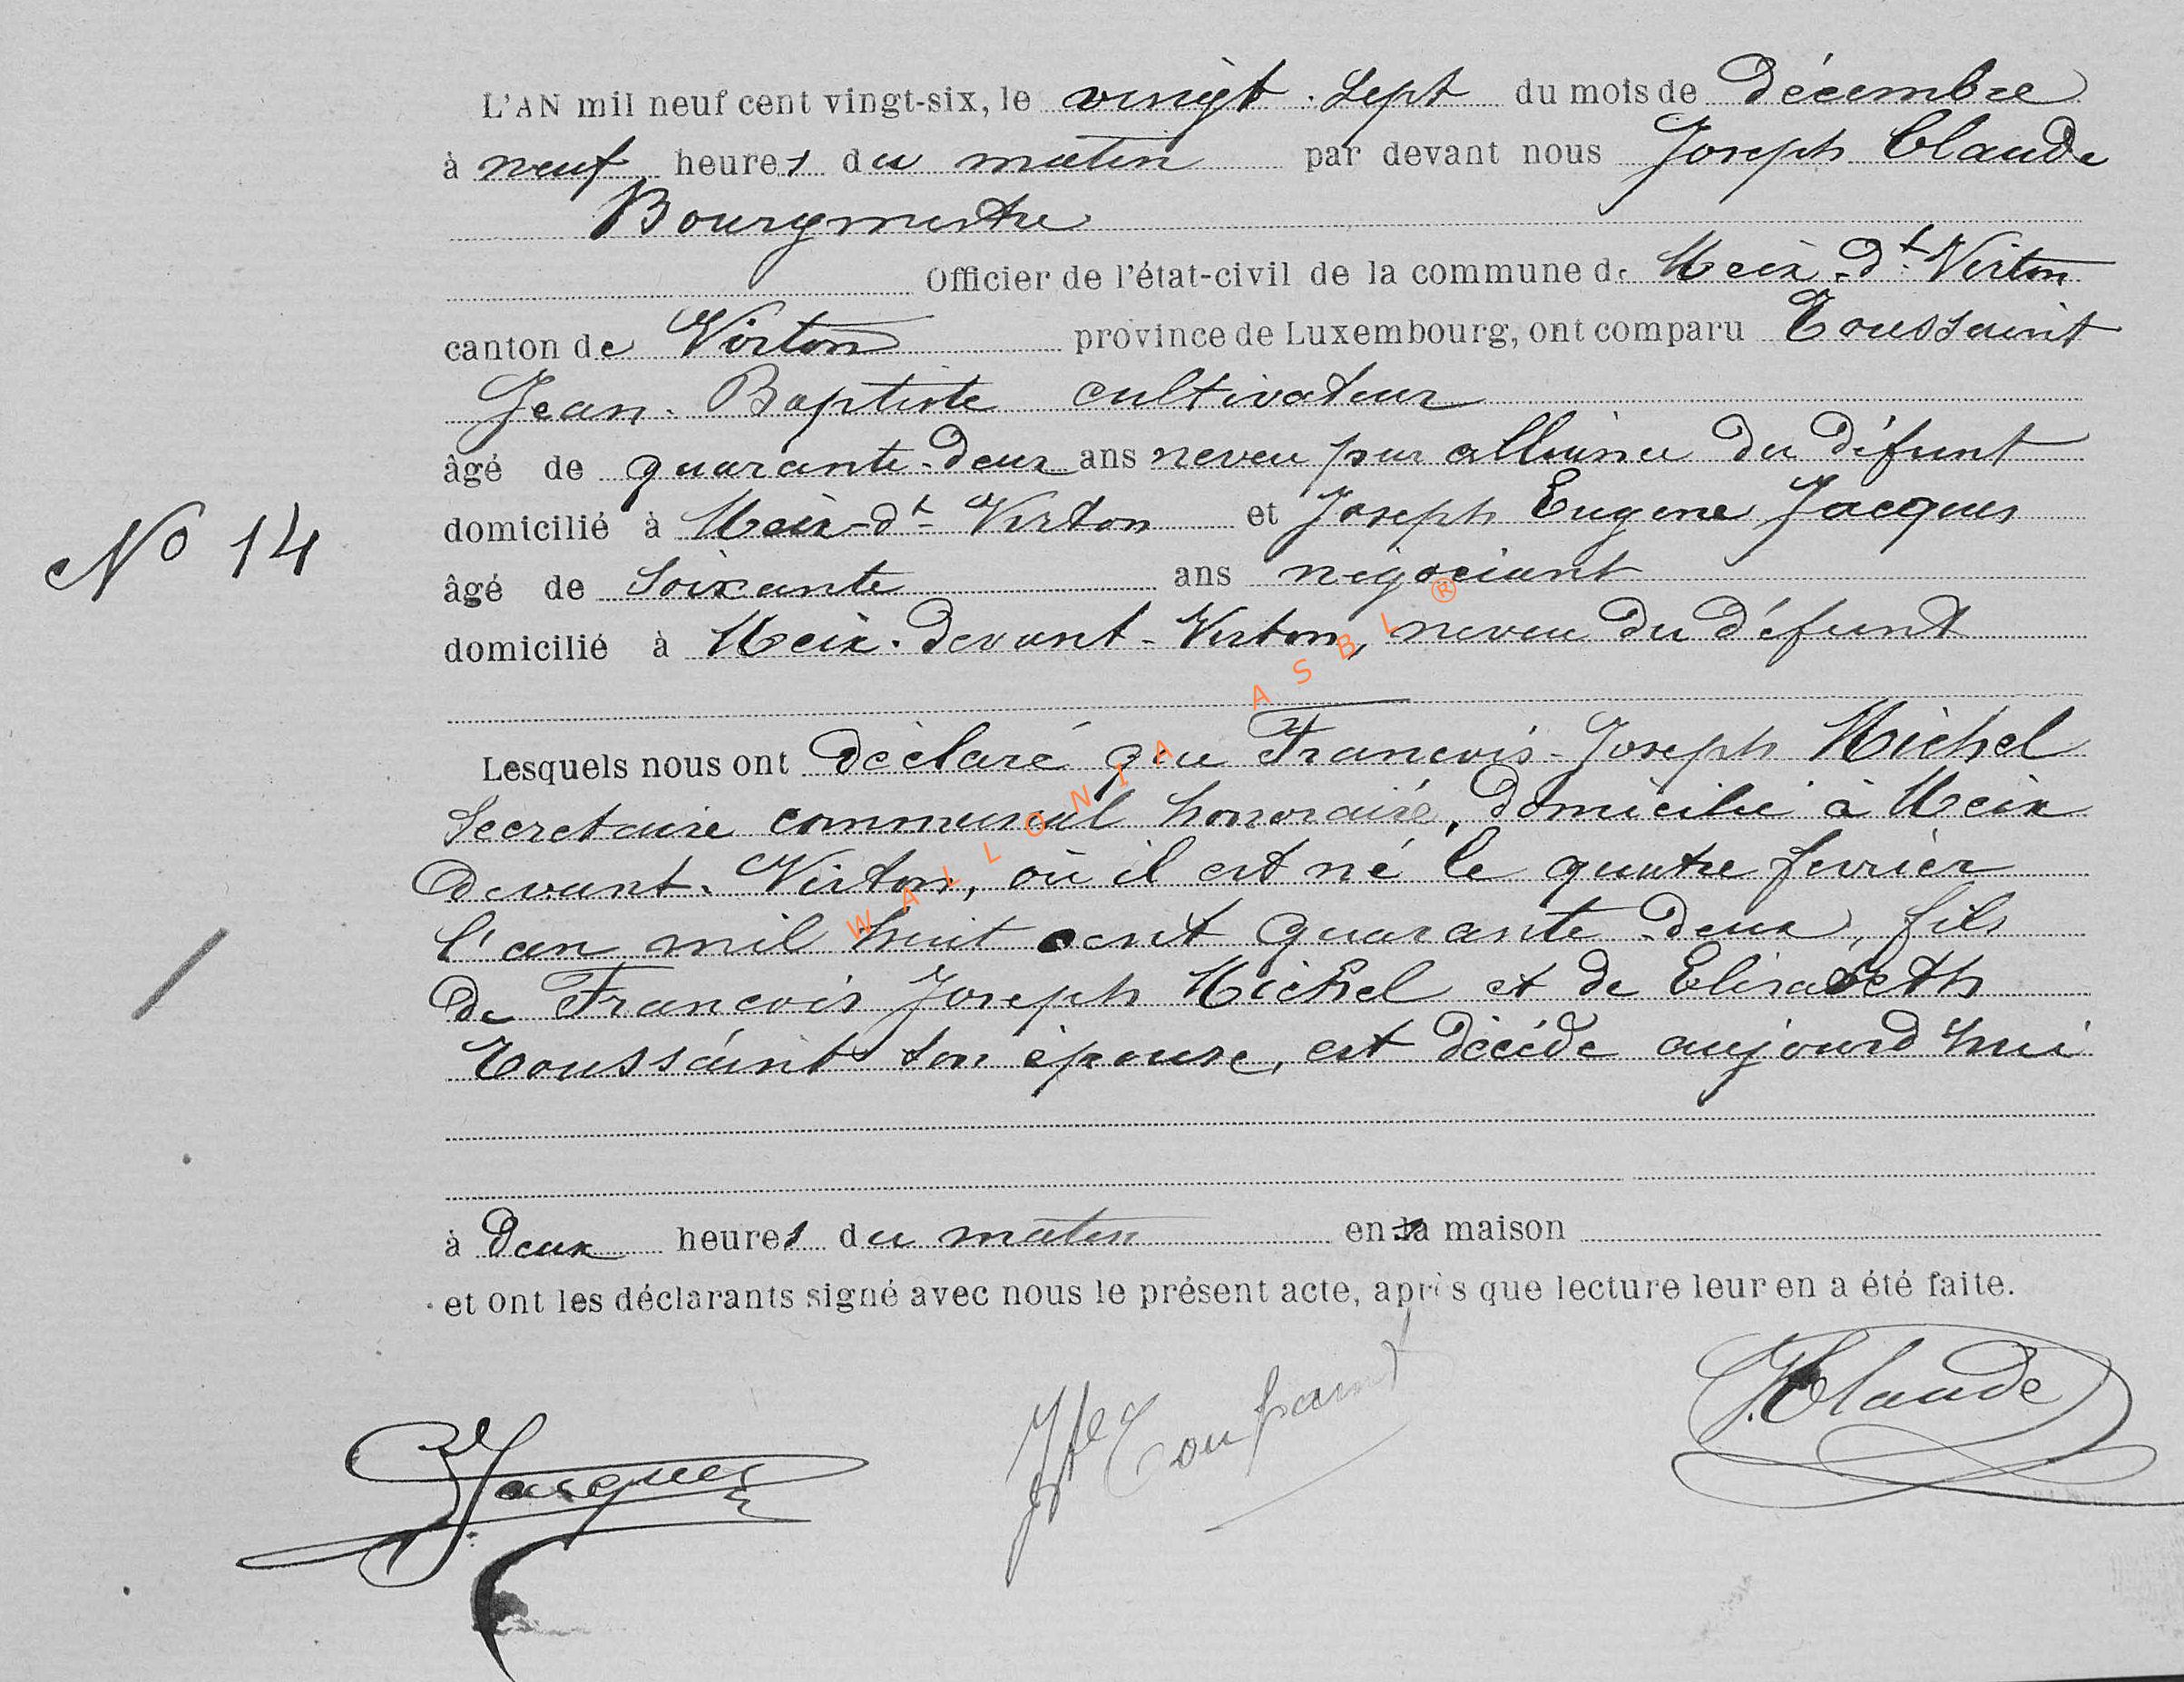 L'AN mil neuf cent vingt-six, le vingt-sept du mois de décembre
à neuf heures du matin par devant nous Joseph Claude
Bourgmestre
Officier de l'état-civil de la commune de Meix-dt-Virton
canton de Virton province de Luxembourg, ont comparu Toussaint
Jean-Baptiste cultivateur
âgé de quarante-deux ans neveu par alliance du défunt
domicilié à Meix-dt-Virton et Joseph Eugène Jacques
No 14
âgé de soixante ans négociant
domicilié à Meix-devant-Virton, neveu du défunt
Lesquels nous ont déclaré que François-Joseph Michel
Secrétaire communal honoraire, domicilié à Meix
devant-Virton, où il est né le quatre février
l'an mil huit cent quarante-deux, fils
de François Joseph Michel et de Elisabeth
Toussaint son épouse, est décédé aujourd'hui
à deux heures du matin en sa maison
et ont les déclarants signé avec nous le présent acte, après que lecture leur en a été faite.
Jacques
Toussaint
J. Claude
WALLONIA ASBL ®